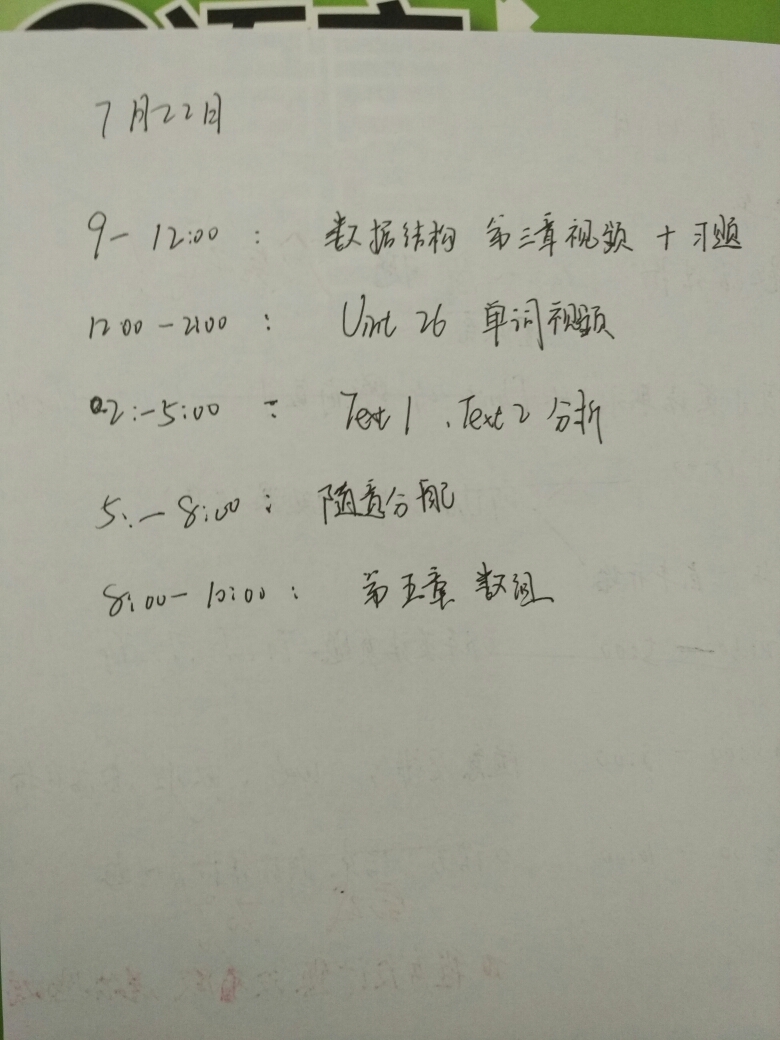 7月22日
9- 12:00 : 数据结构 第三章视频 + 习题
12:00-2:00 : Unit 26 单词视频
2:-5:00 : Text 1、Text 2 分析
5:-8:00 : 随意分配
8:00-10:00 : 第五章 数组